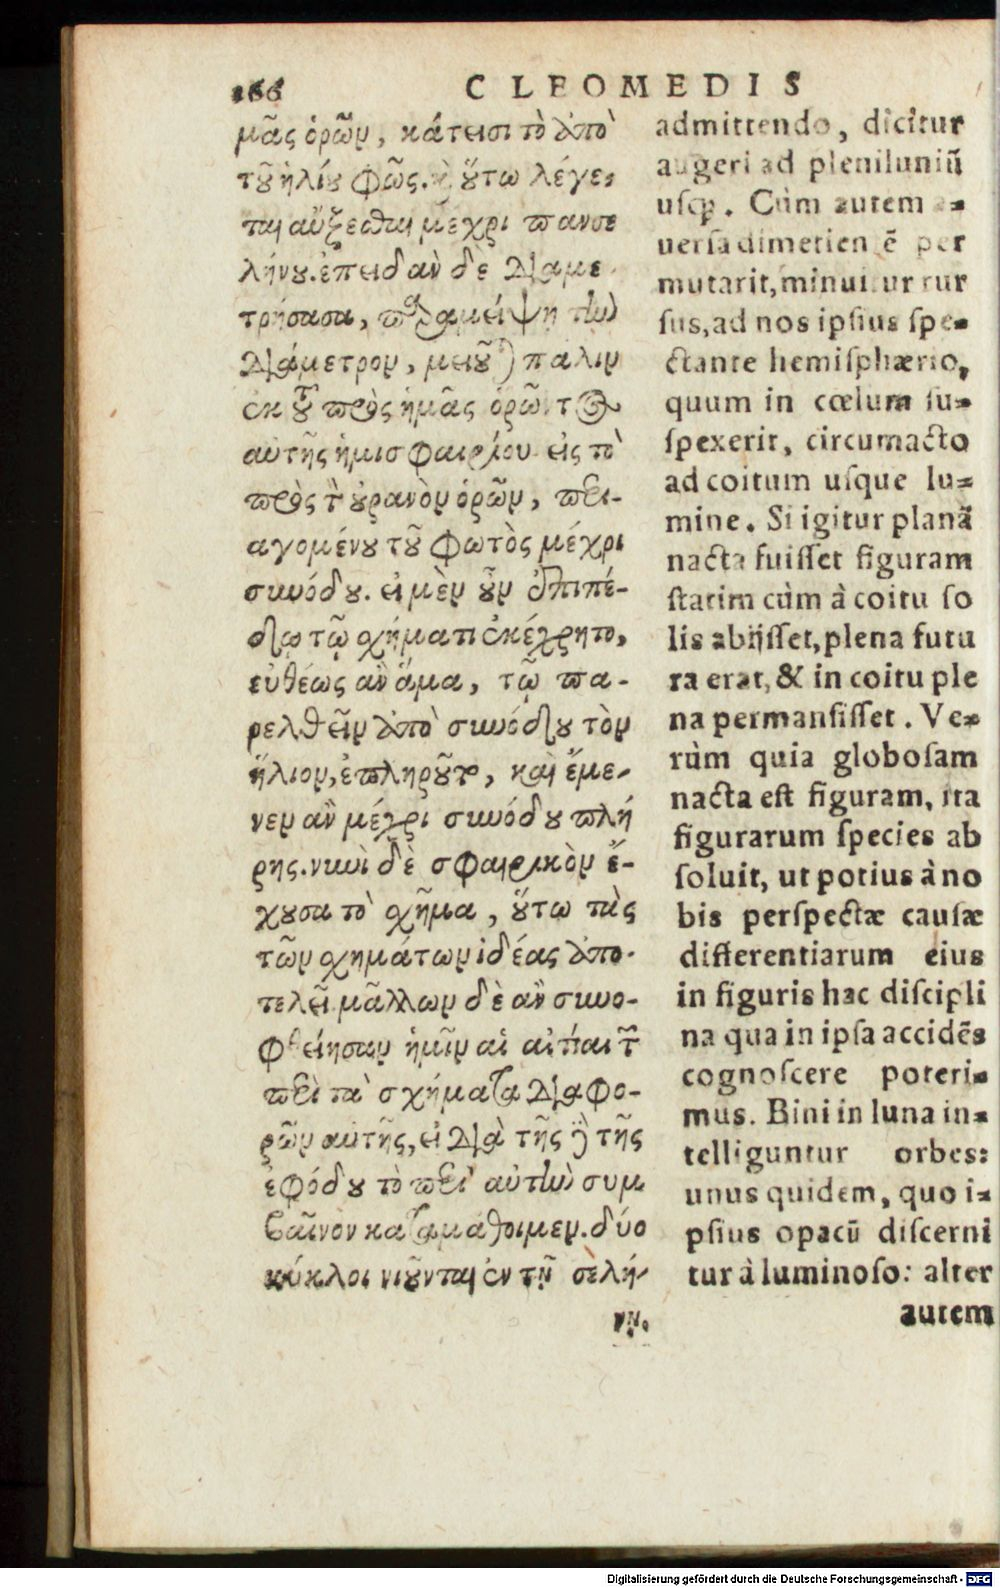 166 CLEOMEDIS
μᾶς ὁρῶν, κάτεισι τὸ ἀπὸ
τοῦ ἡλίου φῶς. καὶ οὕτω λέγε-
ται αὔξεσθαι μέχρι πανσε
λήνου. ἐπειδὰν δὲ διαμε
τρήσασα, παραμείψῃ τὴν
διάμετρον, μειοῦται πάλιν
ἐκ τοῦ πρὸς ἡμᾶς ὁρῶντος
αὐτῆς ἡμισφαιρίου εἰς τὸ
πρὸς τὸν οὐρανὸν ὁρῶν, περι-
αγομένου τοῦ φωτὸς μέχρι
συνόδου. εἰ μὲν οὖν ἐπιπέ-
δῳ τῷ σχήματι ἐκέχρητο,
εὐθέως ἂν ἅμα, τῷ πα-
ρελθεῖν ἀπὸ συνόδου τὸν
ἥλιον, ἐπληροῦτο, καὶ ἔμε-
νεν ἂν μέχρι συνόδου πλή
ρης. νυνὶ δὲ σφαιρικὸν ἔ-
χουσα τὸ σχῆμα, οὕτω τὰς
τῶν σχημάτων ἰδέας ἀπο-
τελεῖ μᾶλλων δὲ ἂν συνο-
φθείησαν ἡμῖν αἱ αἰτίαι τῶν
περὶ τὰ σχήματα διαφο-
ρῶν αὐτῆς, εἰ διὰ τῆς τῆς
ἐφόδου τὸ περὶ αὐτὴν συμ
βαῖνον καταμάθοιμεν. δύο
κύκλοι νοοῦνται ἐν τῇ σελή-
νῃ.
admittendo, dicitur
augeri ad pleniluniũ
usq́. Cùm autem a=
uersa dimetien ẽ per
mutarit, minuitur rur
sus, ad nos ipsius spe=
ctante hemisphærio,
quum in cœlum su=
spexerit, circumacto
ad coitum usque lu=
mine. Si igitur planã
nacta fuisset figuram
statim cùm à coitu so
lis abijsset, plena futu
ra erat, & in coitu ple
na permansisset. Ve=
rùm quia globosam
nacta est figuram, ita
figurarum species ab
soluit, ut potius à no
bis perspectæ causæ
differentiarum eius
in figuris hac discipli
na qua in ipsa accidẽs
cognoscere poteri=
mus. Bini in luna in=
telliguntur orbes:
unus quidem, quo i=
psius opacũ discerni
tur à luminoso: alter
autem
Digitalisierung gefördert durch die Deutsche Forschungsgemeinschaft - DFG